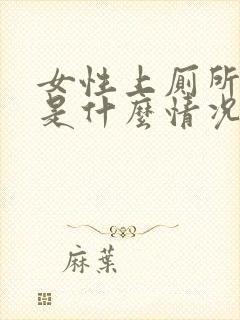 女性上厠所
是什麼情况
麻葉